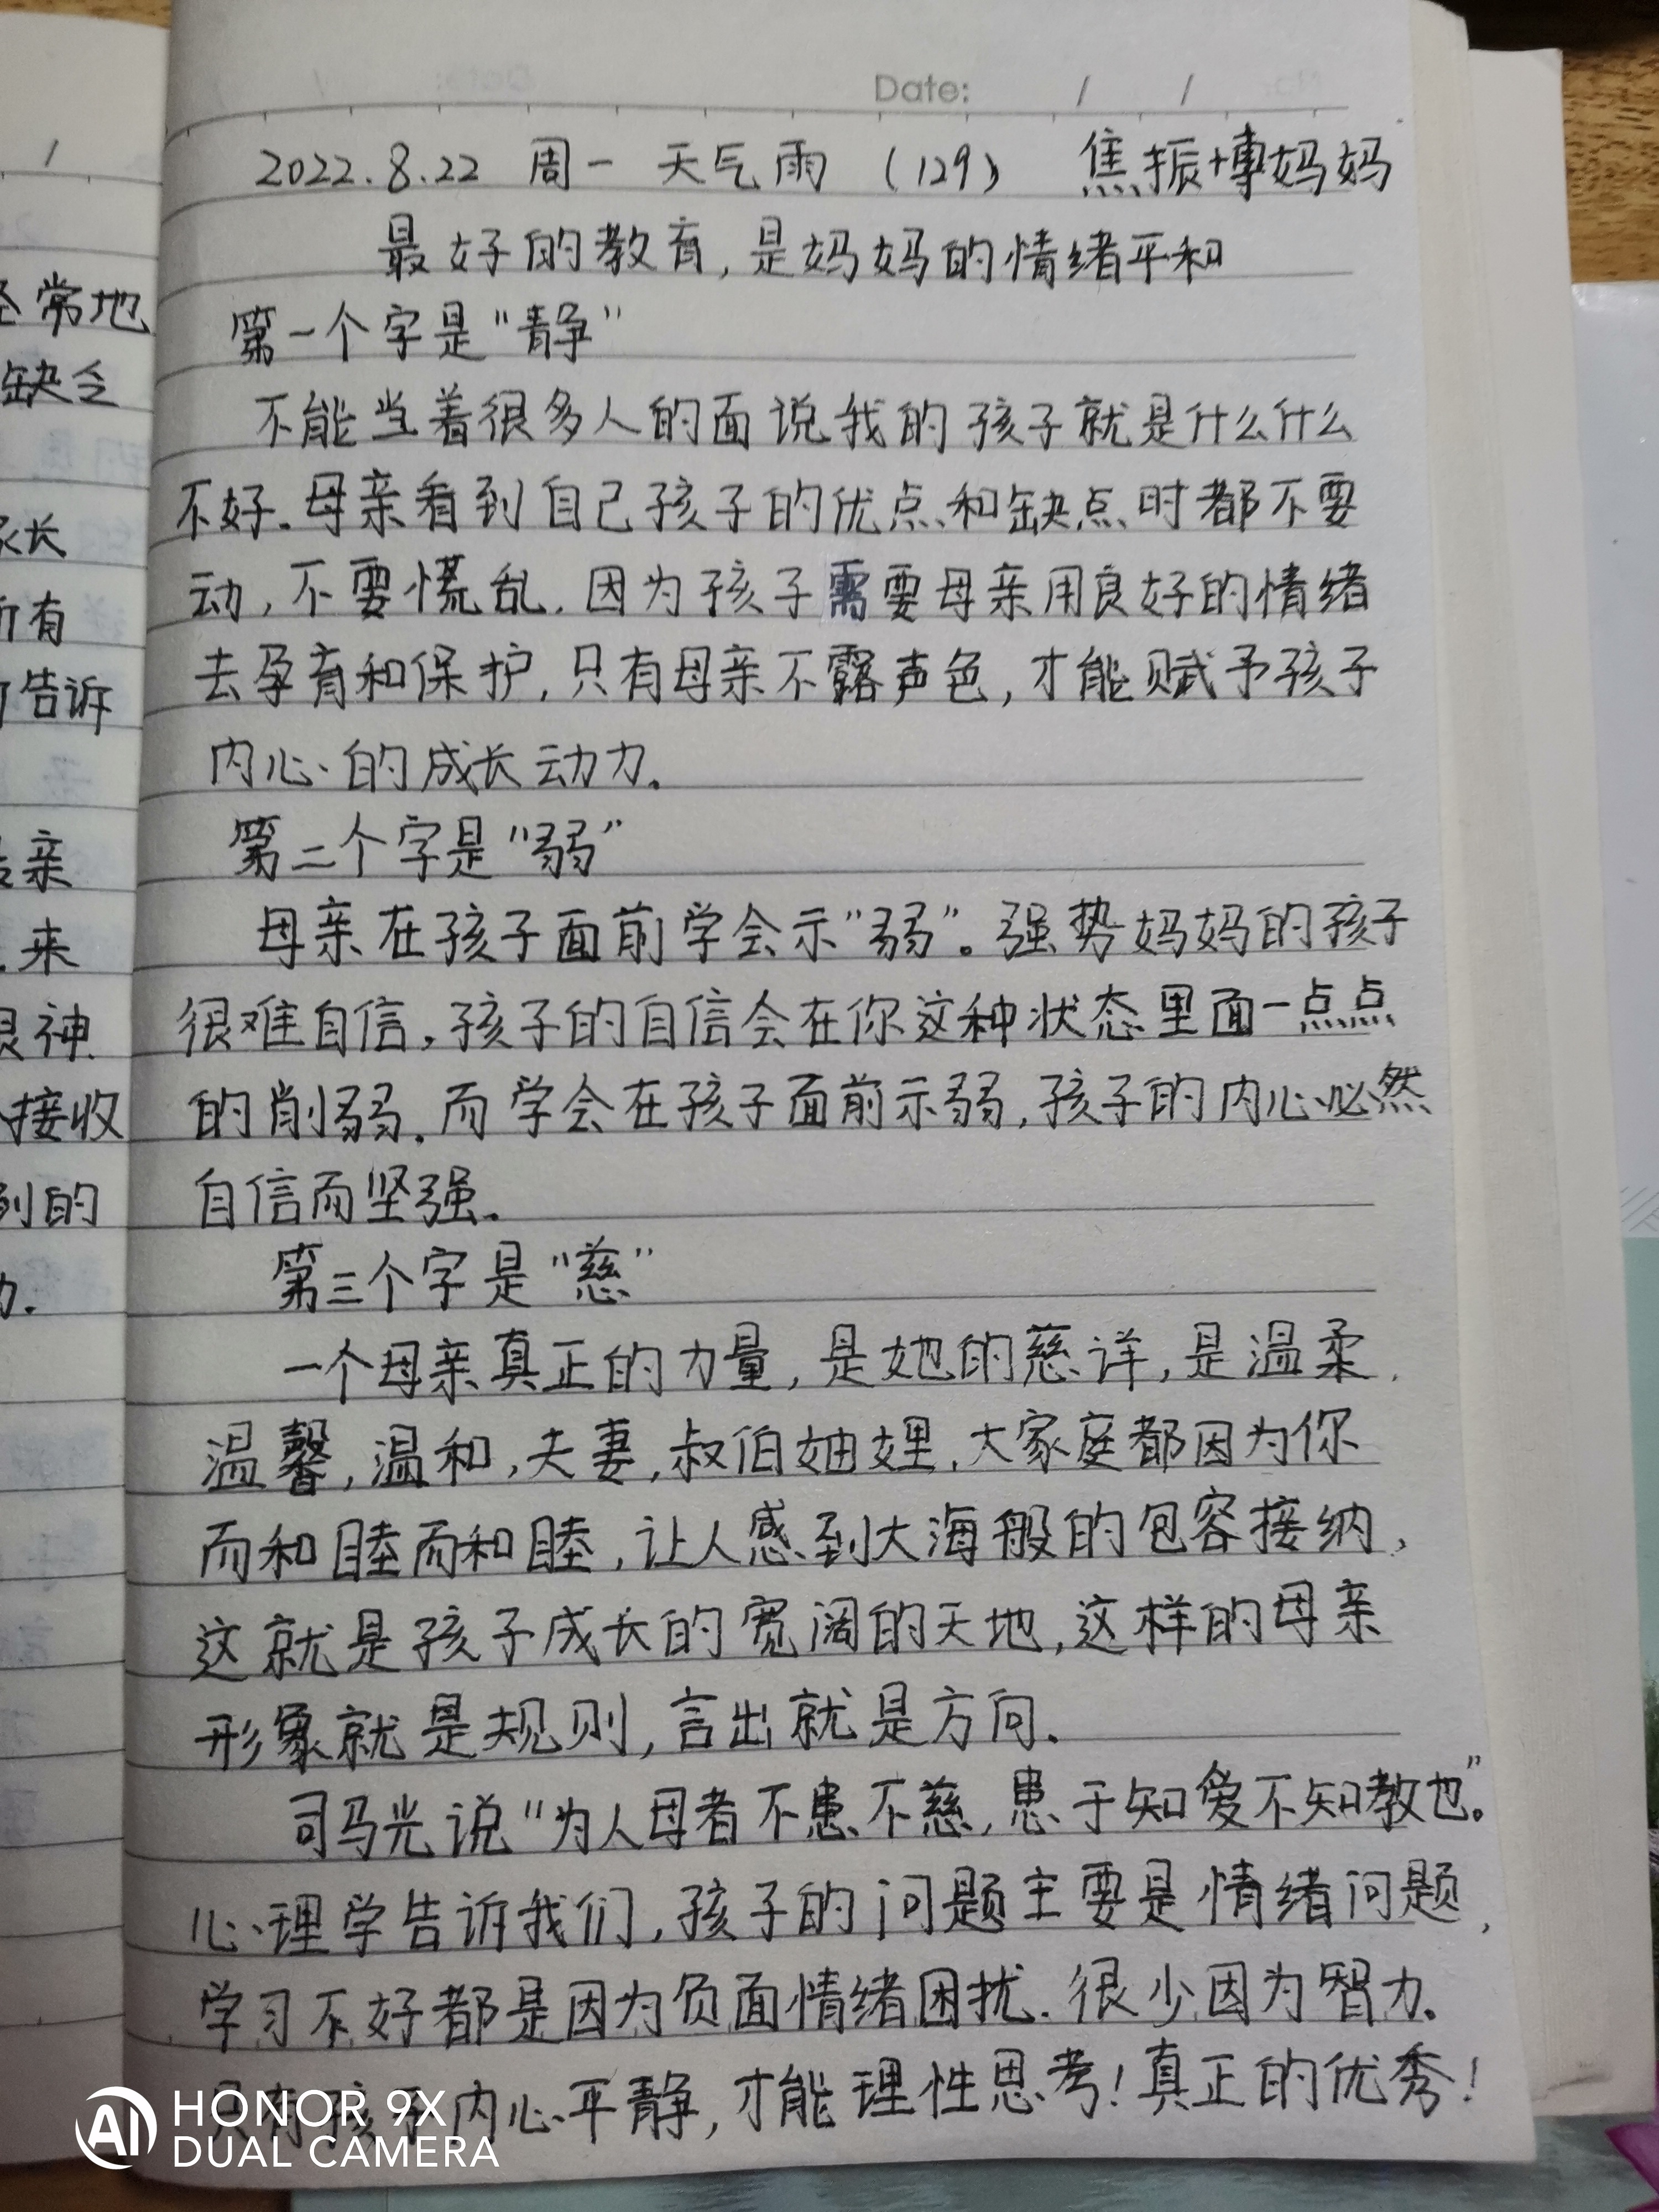 Date: / /
2022.8.22 周一 天气雨 (129) 焦振博妈妈
最好的教育,是妈妈的情绪平和
第一个字是"静"
不能当着很多人的面说我的孩子就是什么什么
不好.母亲看到自己孩子的优点和缺点时都不要
动,不要慌乱.因为孩子需要母亲用良好的情绪
去孕育和保护,只有母亲不露声色,才能赋予孩子
内心的成长动力.
第二个字是"弱"
母亲在孩子面前学会示"弱"。强势妈妈的孩子
很难自信,孩子的自信会在你这种状态里面一点点
的削弱.而学会在孩子面前示弱,孩子的内心必然
自信而坚强.
第三个字是"慈"
一个母亲真正的力量,是她的慈详,是温柔.
温馨,温和,夫妻,叔伯妯娌,大家庭都因为你
而和睦而和睦,让人感到大海般的包容接纳,
这就是孩子成长的宽阔的天地,这样的母亲
形象就是规则,言出就是方向.
司马光说"为人母者不患不慈,患于知爱不知教也"。
心理学告诉我们,孩子的问题主要是情绪问题,
学习不好都是因为负面情绪困扰.很少因为智力.
只有孩子内心平静,才能理性思考!真正的优秀!
/
常地
缺乏
家长
所有
告诉
亲
来
眼神
接收
到的
力.
AI HONOR 9X
DUAL CAMERA